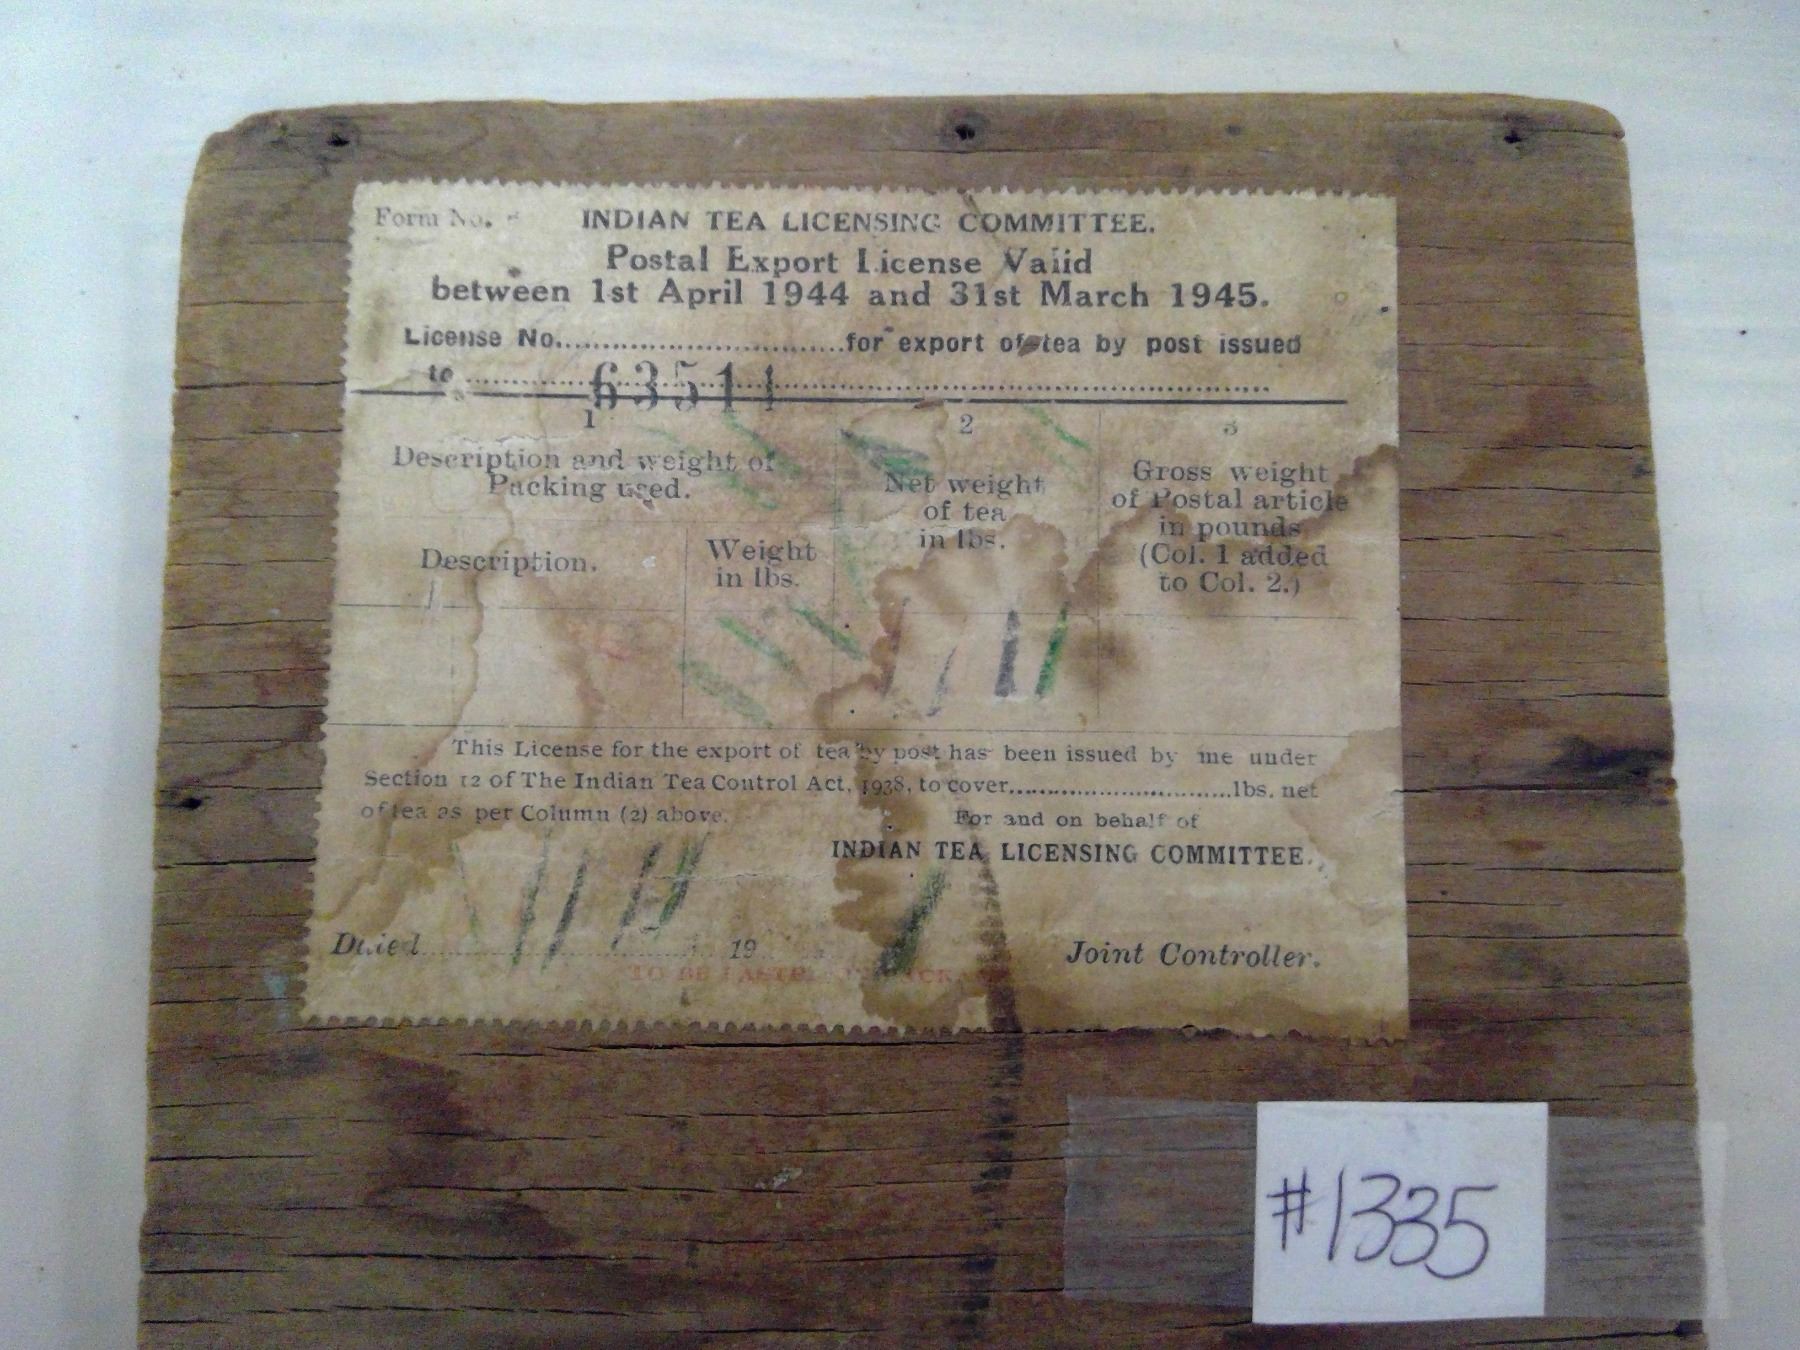 Form No. INDIAN TEA LICENSING COMMITTEE.
Postal Export License Valid
between 1st April 1944 and 31st March 1945.
License No..............................for export of tea by post issued
to ............................................................
63511
1 2 3
Description and weight of Packing used.
Description.
Weight in lbs.
Net weight of tea in lbs.
Gross weight of Postal article in pounds (Col. 1 added to Col. 2.)
This License for the export of tea by post has been issued by me under
Section 12 of The Indian Tea Control Act, 1938, to cover..............................lbs. net
of tea as per Column (2) above.
For and on behalf of
INDIAN TEA LICENSING COMMITTEE.
Dated.............................. 19
Joint Controller.
TO BE
#1335